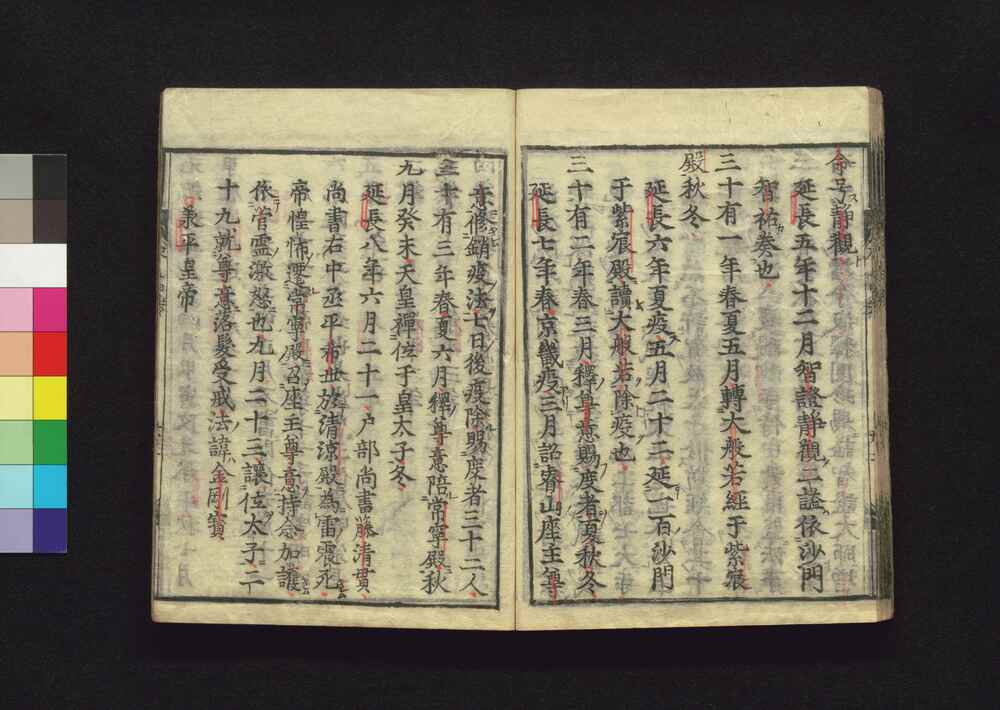 命号静觀
延長五年十二月智證靜觀二謚依沙門
智祐奏也
三十有一年春夏五月轉大般若經于紫宸
殿秋冬
延長六年夏疫五月二十二延一百沙門
于紫宸殿讀大般若除疫也
三十有二年春三月釋尊意賜度者夏秋冬
延長七年春京畿疫三月詔睿山座主尊
意修銷疫法七日後疫除賜度者三十二人
三十有三年春夏六月釋尊意陪常寧殿秋
九月癸未天皇禪位于皇太子冬
延長八年六月二十一戶部尚書藤清貫
尚書右中丞平希世於清凉殿為雷震死
帝惶怖遷常寧殿召座主尊意持念加護
依菅靈激怒也九月二十三讓位太子二
十九就尊意落髮受戒法諱金剛寶
承平皇帝